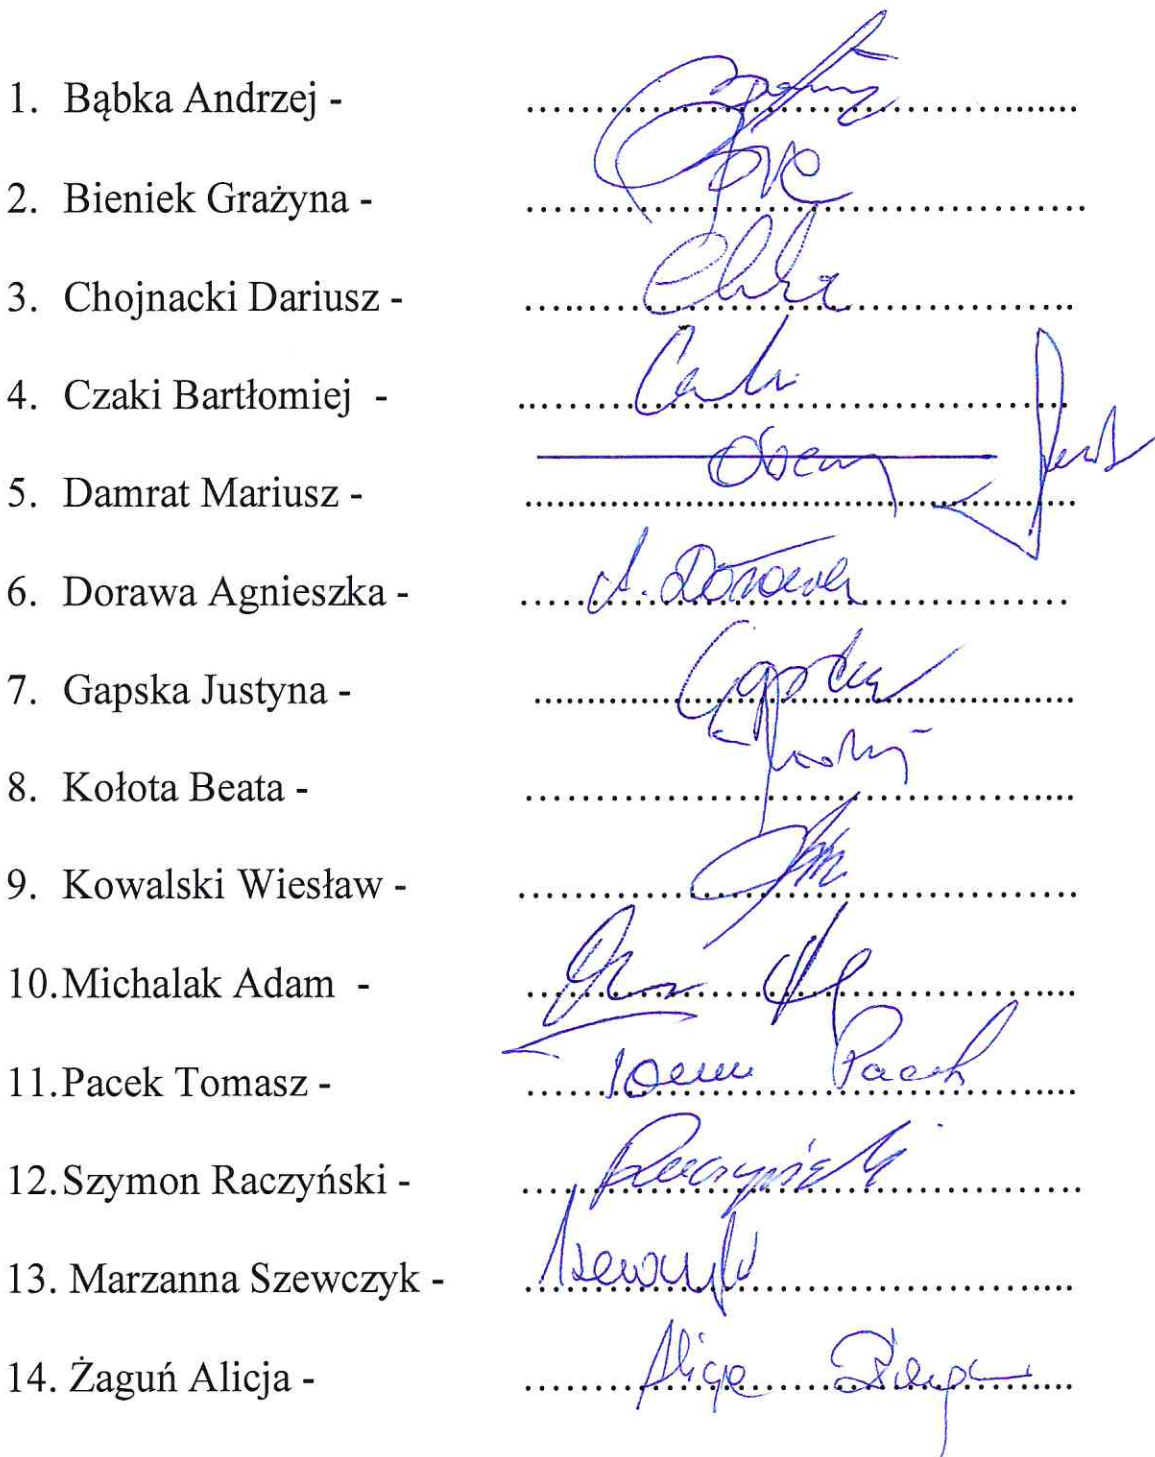 1. Bąbka Andrzej - ..........
2. Bieniek Grażyna - ..........
3. Chojnacki Dariusz - ..........
4. Czaki Bartłomiej - ..........
5. Damrat Mariusz - ..........
6. Dorawa Agnieszka - .......... A. Dorawa
7. Gapska Justyna - .......... Gapska
8. Kołota Beata - ..........
9. Kowalski Wiesław - ..........
10. Michalak Adam - ..........
11. Pacek Tomasz - .......... Pacek
12. Szymon Raczyński - .......... Raczyński
13. Marzanna Szewczyk - .......... Szewczyk
14. Żaguń Alicja - .......... Alicja